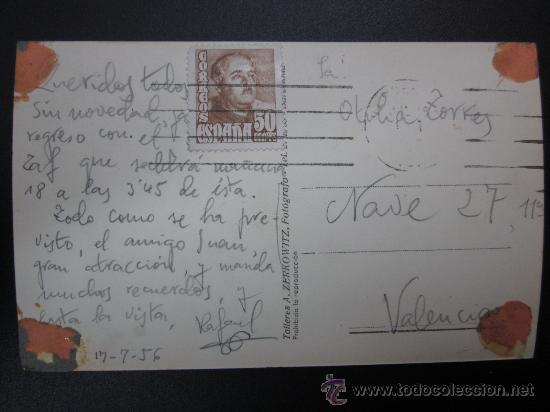 Queridos todos
Sin novedad, ya
regreso con el
Taf que saldrá mañana
18 a las 3'45 de ésta.
Todo como se ha pre-
visto, el amigo Juan,
gran atracción, y manda
muchos recuerdos, y
hasta la vista,
Rafael
17-7-56
CORREOS
ESPAÑA
50
Talleres A. ZERKOWITZ, Fotógrafo
Prohibida la reproducción
Otilia Torres
Nave 27, 11ª
Valencia
todocoleccion.net
www.todocoleccion.net